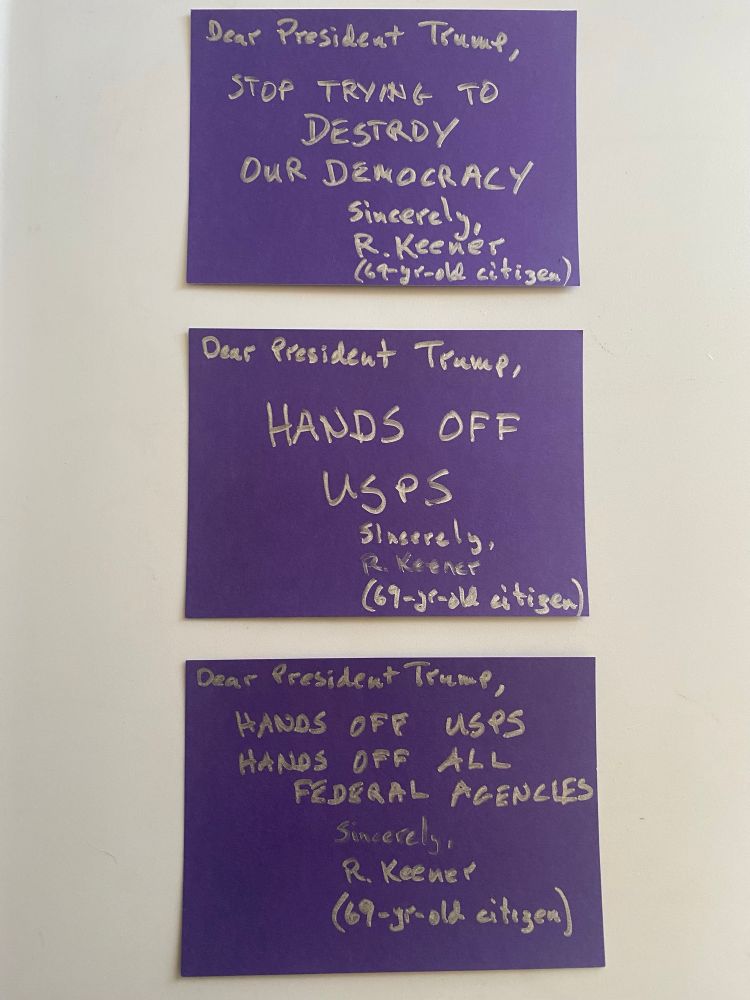 Dear President Trump,
STOP TRYING TO
DESTROY
OUR DEMOCRACY
Sincerely,
R. Keener
(69-yr-old citizen)
Dear President Trump,
HANDS OFF
USPS
Sincerely,
R. Keener
(69-yr-old citizen)
Dear President Trump,
HANDS OFF USPS
HANDS OFF ALL
FEDERAL AGENCIES
Sincerely,
R. Keener
(69-yr-old citizen)